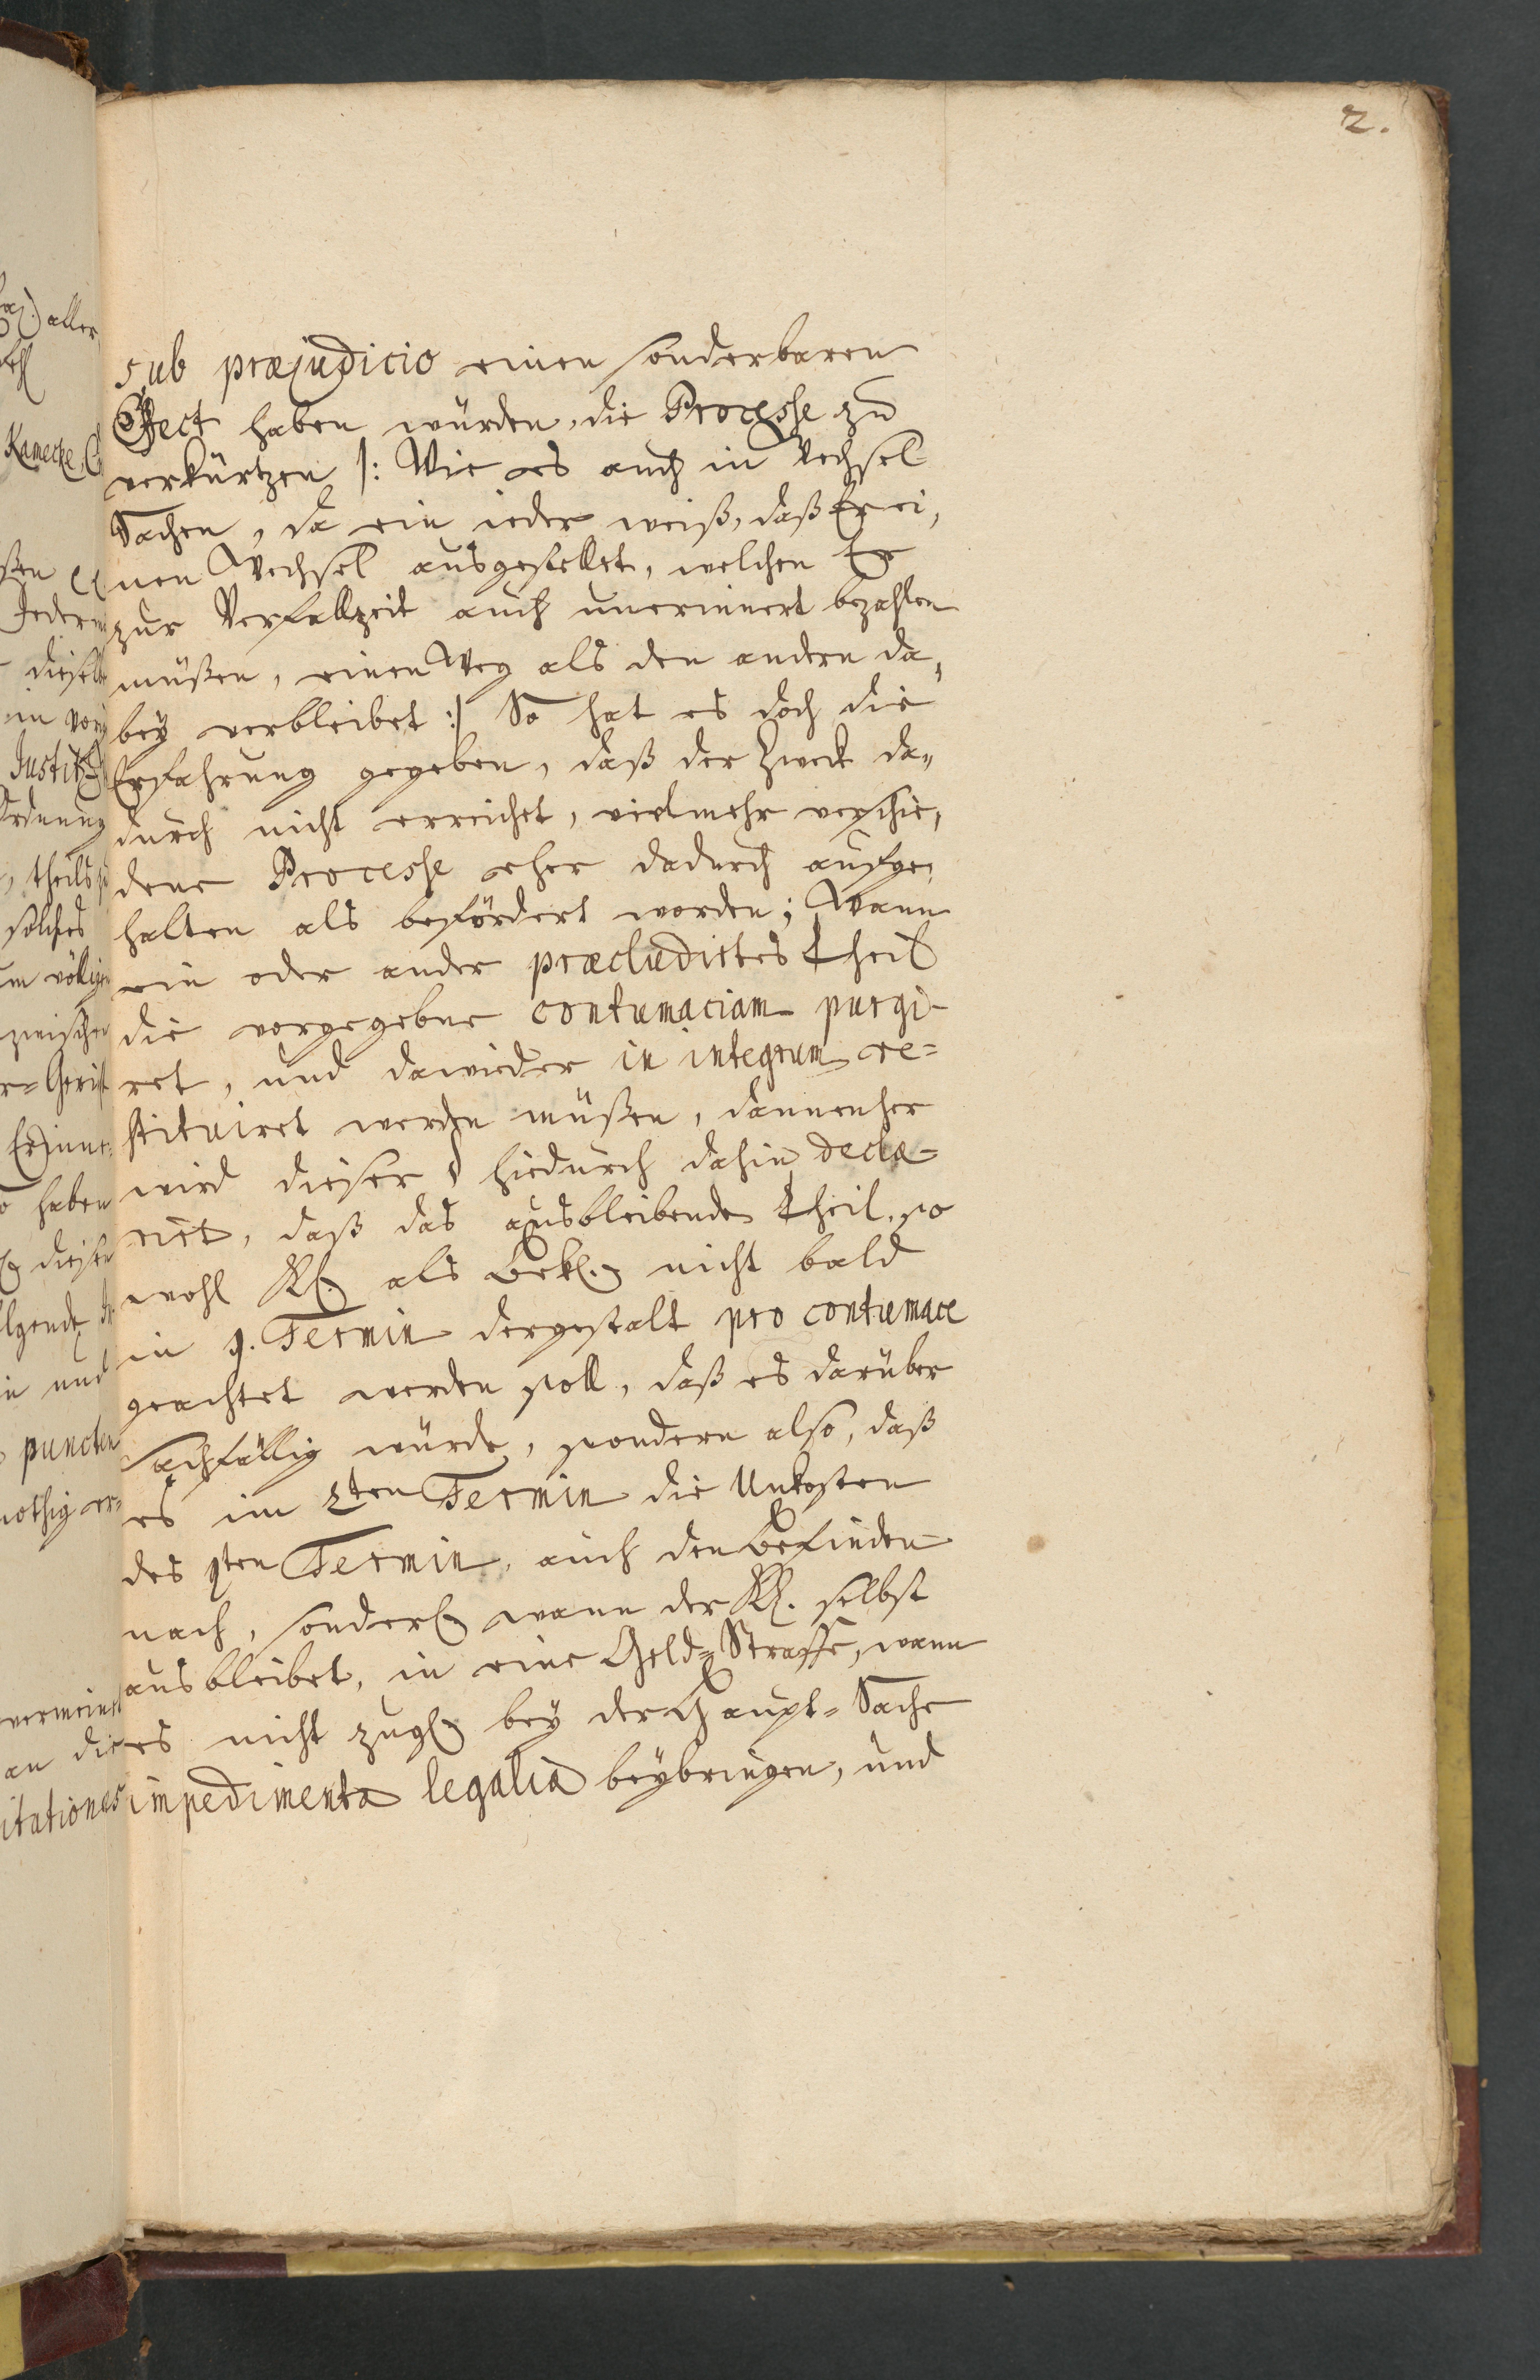 2.
sub præjudicio einen sonderbaren
Effect haben würden, die Processe zu
verkürtzen /: Wie es auch in Wechsel
Sachen, da ein ieder weiß, daß Er ei,
nen Wechsel ausgestellet, welchen Er
zur Verfallzeit auch unerinnert bezahlen
müßen, einen Weg als den andern da,
bey verbleibet :/ So hat es doch die
Erfahrung gegeben, daß der Zweck da„
durch nicht erreichet, vielmehr verschie,
dene Processe eher dadurch aufge,
halten als befördert worden; Wann
ein oder ander præcludirtes Theil
die vorgegebne contumaciam purgi-
ret, und dawieder in integrum re=
stituiret werden müßen, dannenher
wird dieser § hiedurch dahin decla=
riret, daß das ausbleibende Theil, so
wohl Kl. als Bekl. nicht bald
in 1. Termin dergestalt pro contumace
geachtet werden soll, daß es darüber
Sachfällig würde, sondern also, daß
es im 2ten Termin die Unkosten
des 1ten Termin, auch den befinden
nach, sonderl. wann der Kl. selbst
ausbleibet, in eine Geld=Straffe, wann
es nicht zugl. bey der Haupt=Sache
impedimenta legalia beybringen, und
aller
Kamecke
dieselbe
Justitz
Ordnung
theils
solches
zwischen
haben
und
puncten
nothig er=
an die
itationes